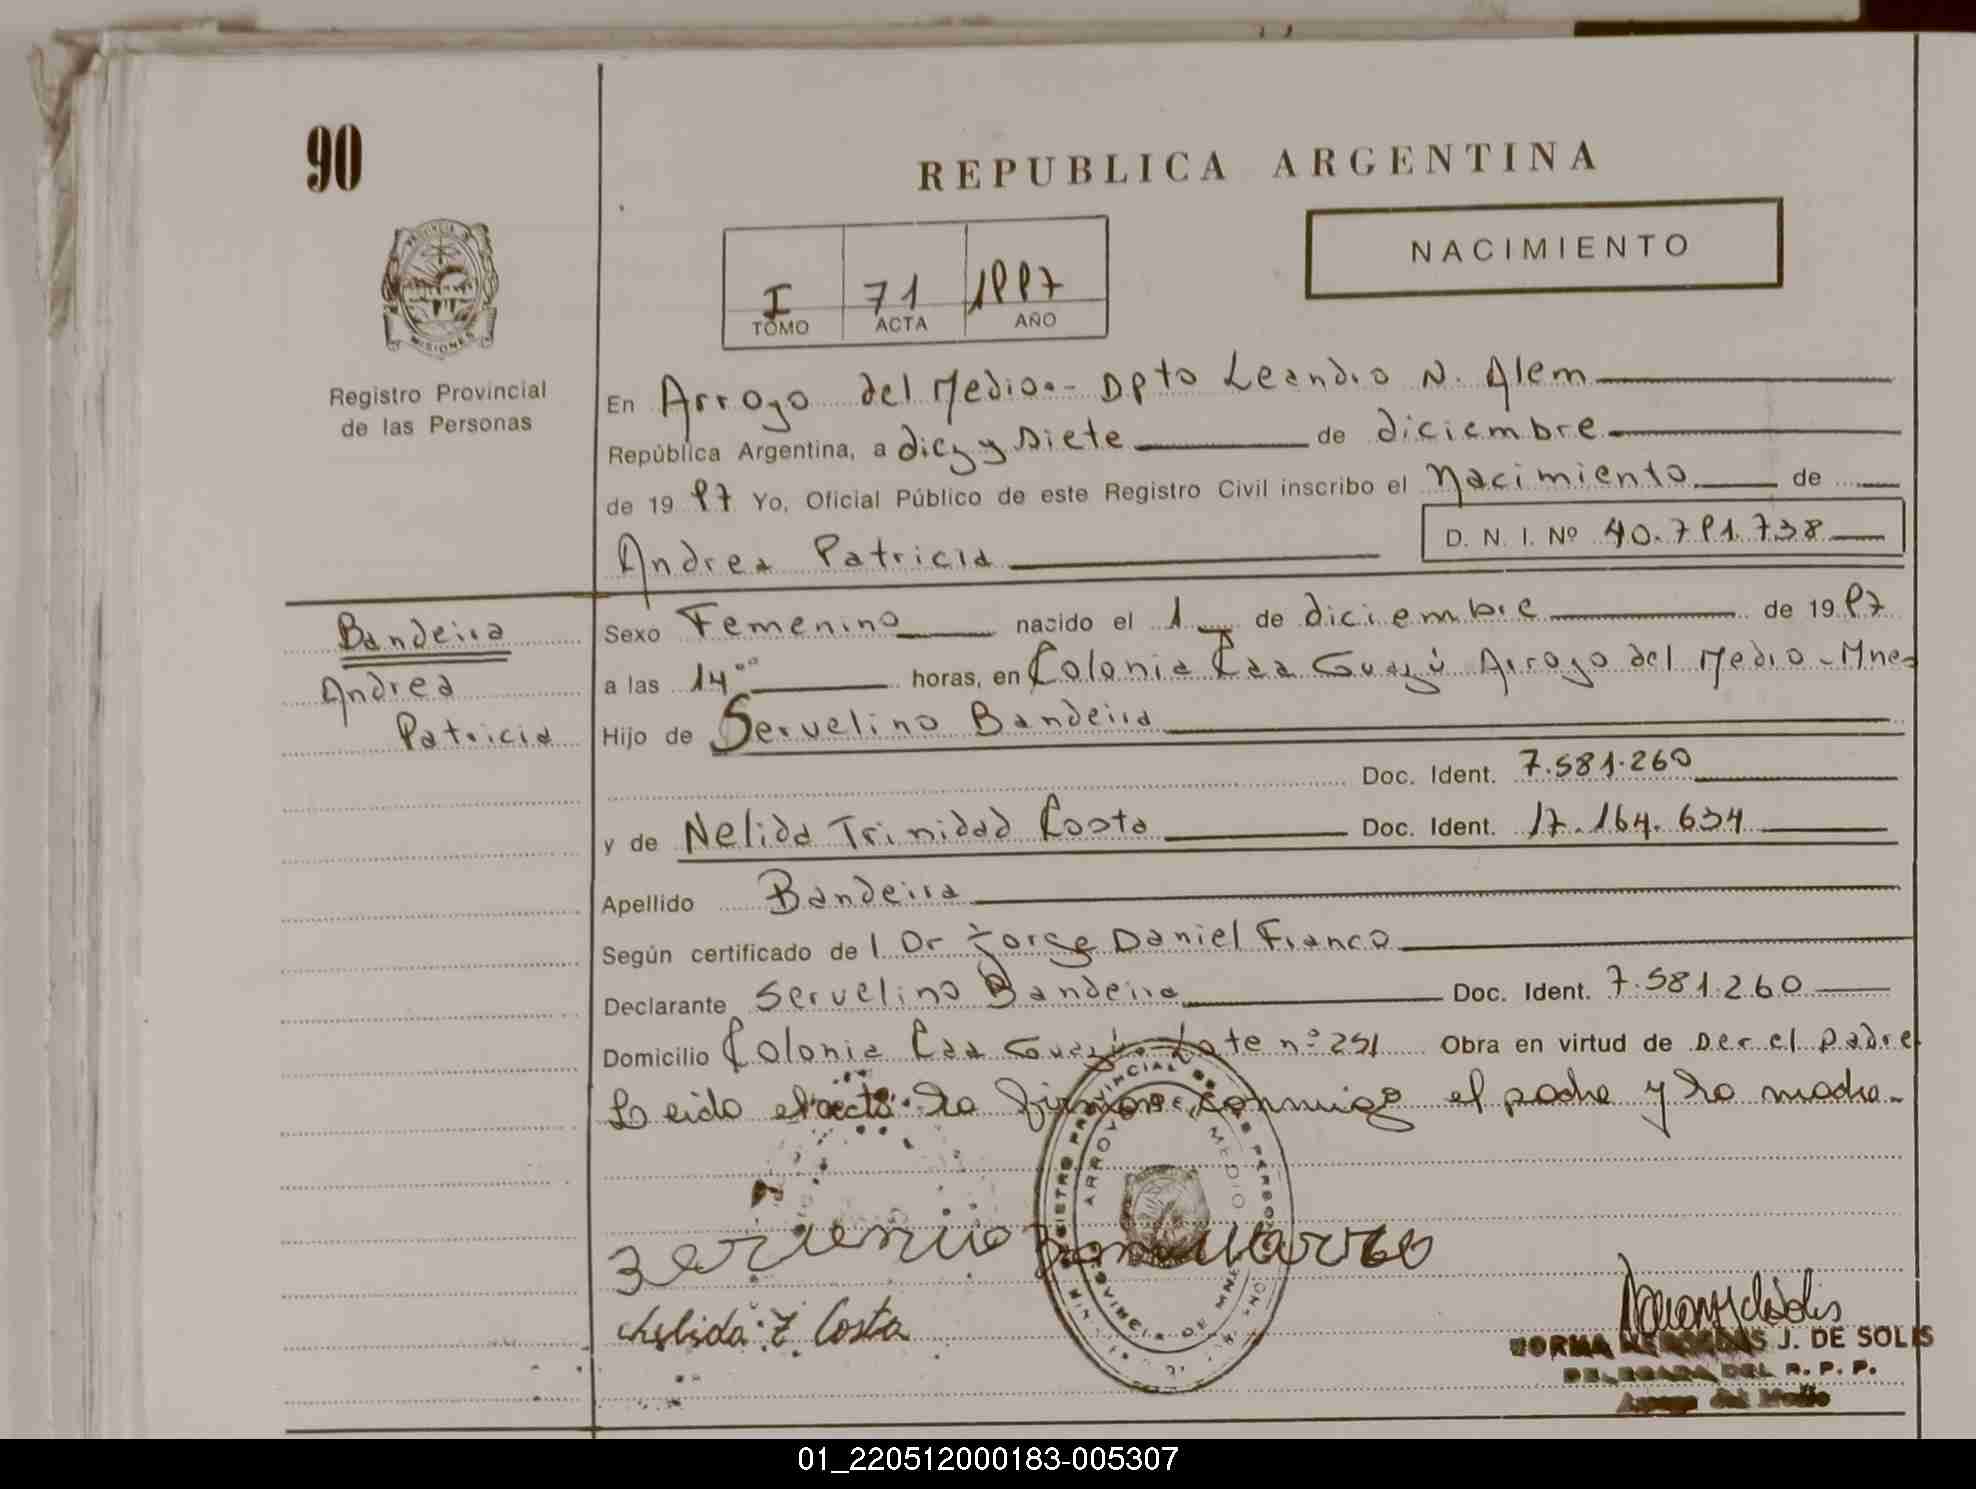 90
REPUBLICA ARGENTINA
NACIMIENTO
I 71 1997
TOMO ACTA AÑO
MISIONES
Registro Provincial
de las Personas
En Arroyo del Medio.- Dpto Leandro N. Alem
República Argentina, a diez y siete de diciembre
de 19 97 Yo, Oficial Público de este Registro Civil inscribo el Nacimiento de
D. N. I. Nº 40.791.738
Andrea Patricia
Bandeira
Andrea
Patricia
Sexo Femenino nacido el 1 de diciembre de 19 97
a las 14°° horas, en Colonia Caa Guazú Arroyo del Medio - Mnes
Hijo de Servelino Bandeira
Doc. Ident. 7.581.260
y de Nelida Trinidad Costa Doc. Ident. 17.164.634
Apellido Bandeira
Según certificado del Dr Jorge Daniel Franco
Declarante Servelino Bandeira Doc. Ident. 7.581.260
Domicilio Colonia Caa Guazú. Lote n° 251 Obra en virtud de ser el padre
Leido el acta la firman conmigo el padre y la madre.-
REGISTRO PROVINCIAL DE LAS PERSONAS
ARROYO MEDIO
PROVINCIA DE MNES
Nelida T Costa
NORMA J. DE SOLIS
DELEGADA DEL R. P. P.
Arroyo del Medio
01_220512000183-005307